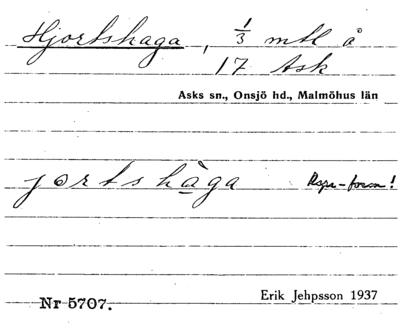 Hjortshaga, 1/3 mtl å
17 Ask
Asks sn., Onsjö hd., Malmöhus län
jortshàga Rspr-form!
Erik Jehpsson 1937
Nr 5707.